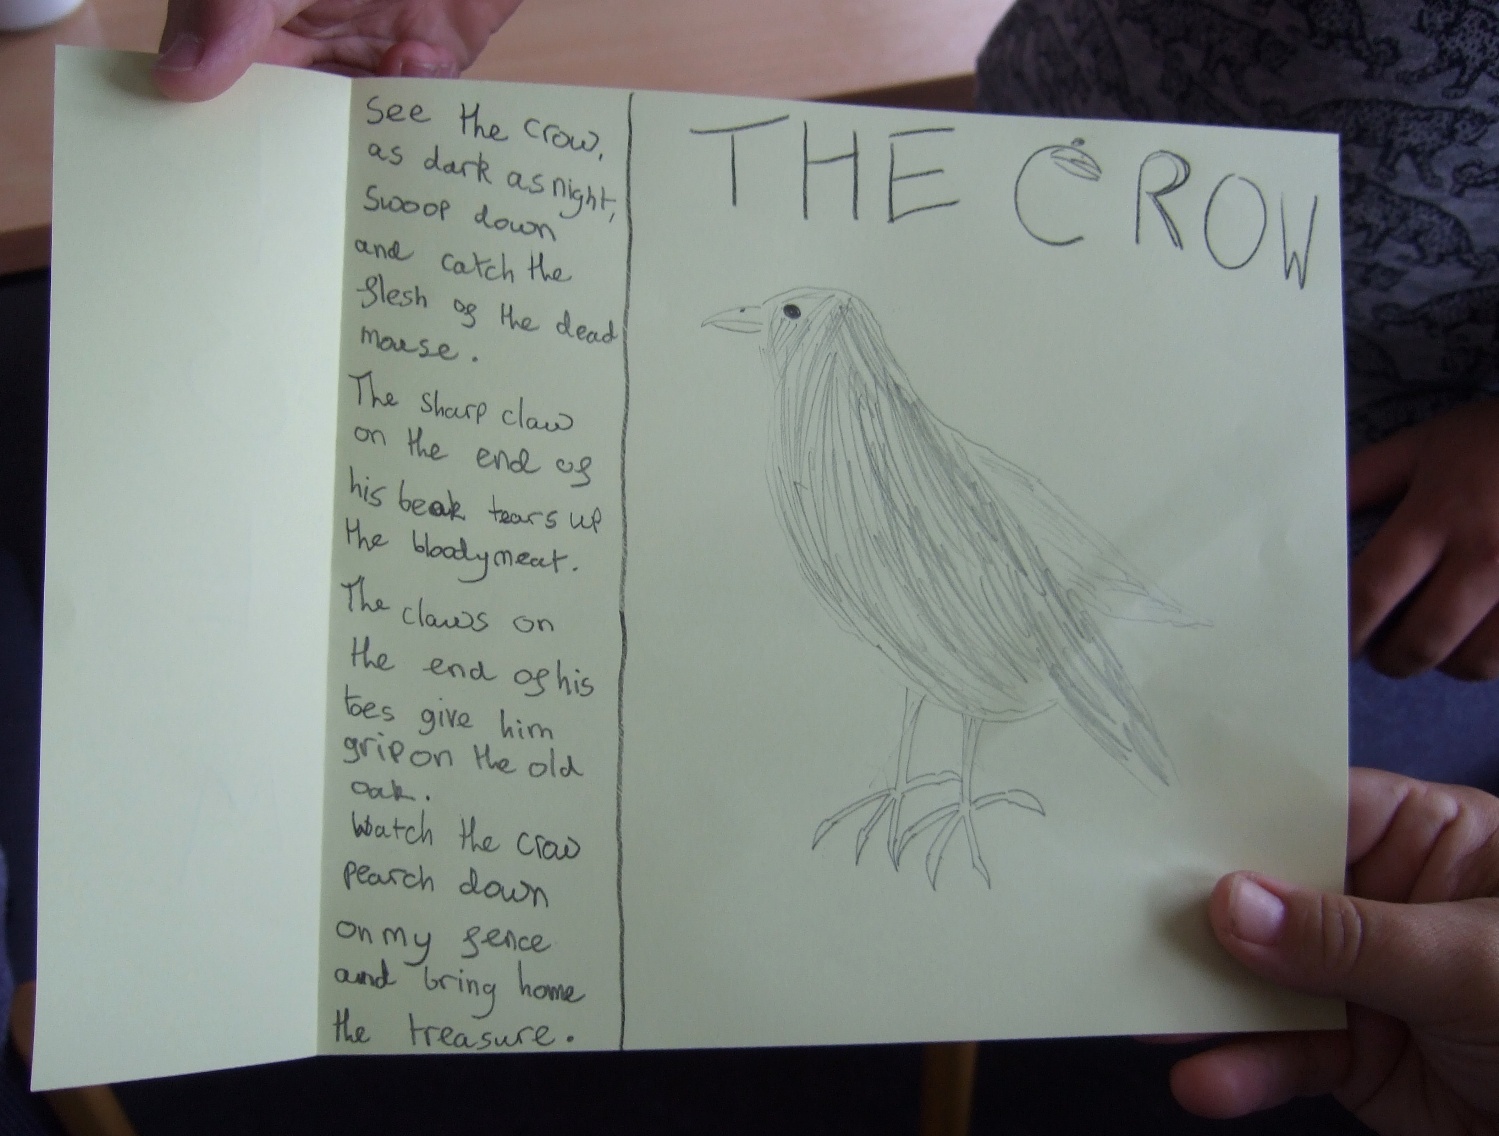 See the crow,
as dark as night,
Swoop down
and catch the
flesh of the dead
mouse.
The sharp claw
on the end of
his beak tears up
the bloody meat.
The claws on
the end of his
toes give him
grip on the old
oak.
Watch the crow
pearch down
on my fence
and bring home
the treasure.
THE CROW